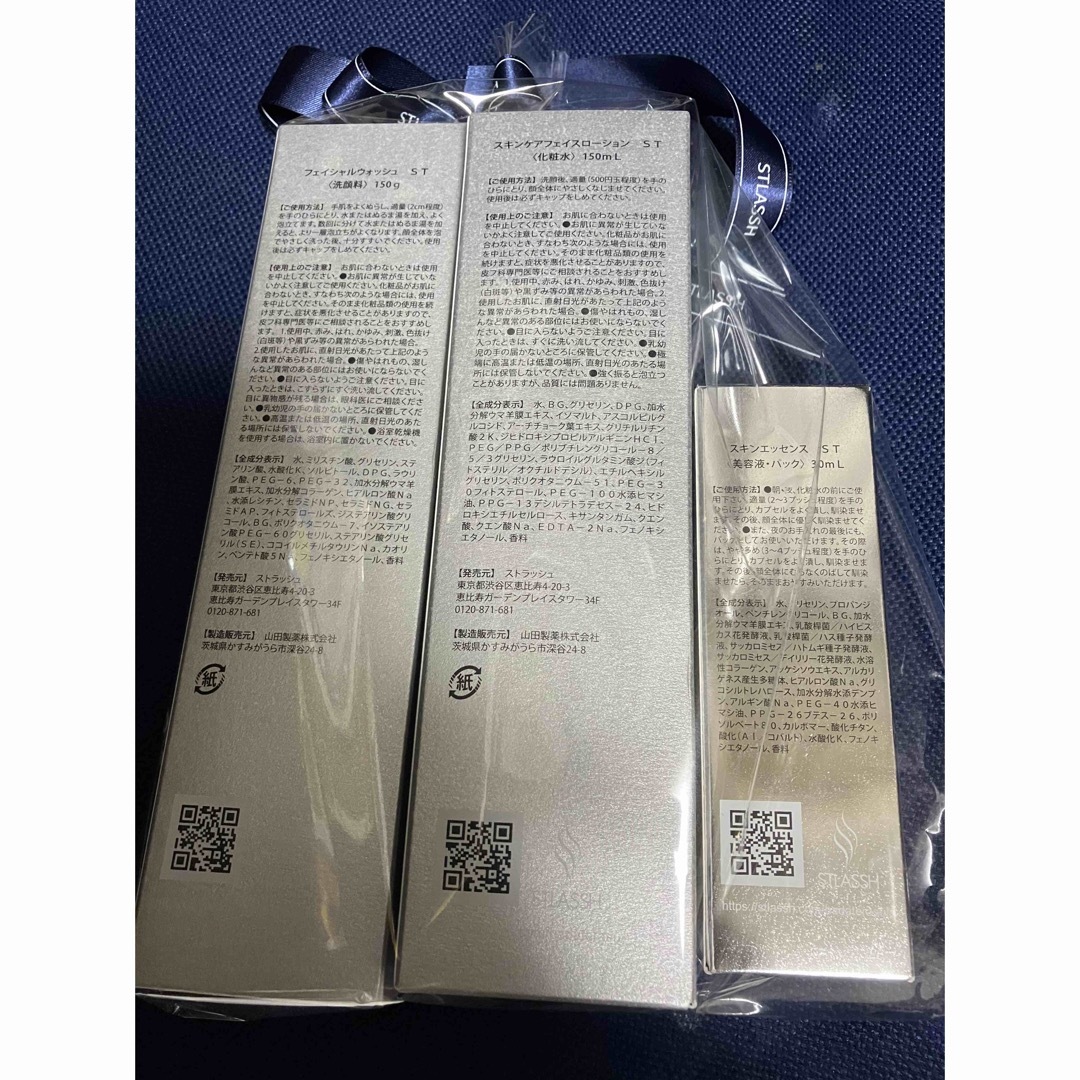 STLASSH
フェイシャルウォッシュ ST
〈洗顔料〉150g
【ご使用方法】 手肌をよくぬらし、適量(2cm程度)
を手のひらにとり、水またはぬるま湯を加え、よく
泡立てます。数回に分けて水またはぬるま湯を加
えると、より一層泡立ちがよくなります。顔全体を泡
でやさしく洗った後、十分すすいでください。使用
後は必ずキャップをしめてください。
【使用上のご注意】 お肌に合わないときは使用
を中止してください。●お肌に異常が生じていな
いかよく注意してご使用ください。化粧品がお肌に
合わないとき、すなわち次のような場合には、使用
を中止してください。そのまま化粧品類の使用を続
けますと、症状を悪化させることがありますので、
皮フ科専門医等にご相談されることをおすすめし
ます。 1.使用中、赤み、はれ、かゆみ、刺激、色抜け
(白斑等)や黒ずみ等の異常があらわれた場合。
2.使用したお肌に、直射日光があたって上記のよう
な異常があらわれた場合。●傷やはれもの、湿し
んなど異常のある部位にはお使いにならないでく
ださい。●目に入らないようご注意ください。目に
入ったときは、こすらずにすぐ洗い流してください。
目に異物感が残る場合は、眼科医にご相談ください。
●乳幼児の手の届かないところに保管してくださ
い。●高温または低温の場所、直射日光のあた
る場所には保管しないでください。●浴室乾燥機
を使用する場合は、浴室内に置かないでください。
【全成分表示】 水、ミリスチン酸、グリセリン、ステ
アリン酸、水酸化K、ソルビトール、DPG、ラウリ
ン酸、PEG-6、PEG-32、加水分解ウマ羊
膜エキス、加水分解コラーゲン、ヒアルロン酸Na
、水添レシチン、セラミドNP、セラミドNG、セ
ラミドAP、フィトステロールズ、ジステアリン酸グリ
コール、BG、ポリクオタニウム-7、イソステアリ
ン酸PEG-60グリセリル、ステアリン酸グリセ
リル(SE)、ココイルメチルタウリンNa、カオリ
ン、ペンテト酸5Na、フェノキシエタノール、香料
【発売元】 ストラッシュ
東京都渋谷区恵比寿4-20-3
恵比寿ガーデンプレイスタワー34F
0120-871-681
【製造販売元】 山田製薬株式会社
茨城県かすみがうら市深谷24-8
紙
スキンケアフェイスローション ST
〈化粧水〉150mL
【ご使用方法】 洗顔後、適量(500円玉程度)を手の
ひらにとり、顔全体にやさしくなじませてください。
使用後は必ずキャップをしめてください。
【使用上のご注意】 お肌に合わないときは使用
を中止してください。●お肌に異常が生じていな
いかよく注意してご使用ください。化粧品がお肌に
合わないとき、すなわち次のような場合には、使用
を中止してください。そのまま化粧品類の使用を
続けますと、症状を悪化させることがありますので、
皮フ科専門医等にご相談されることをおすすめし
ます。 1.使用中、赤み、はれ、かゆみ、刺激、色抜け
(白斑等)や黒ずみ等の異常があらわれた場合。2.
使用したお肌に、直射日光があたって上記のよう
な異常があらわれた場合。●傷やはれもの、湿し
んなど異常のある部位にはお使いにならないでく
ださい。●目に入らないようご注意ください。目に
入ったときは、すぐに洗い流してください。●乳幼
児の手の届かないところに保管してください。●極
端に高温または低温の場所、直射日光のあたる場
所には保管しないでください。●強く振ると泡立つ
ことがありますが、品質には問題ありません。
【全成分表示】 水、BG、グリセリン、DPG、加水
分解ウマ羊膜エキス、イソマルト、アスコルビルグ
ルコシド、アーチチョーク葉エキス、グリチルリチン
酸2K、ジヒドロキシプロピルアルギニンHCl、
PEG/PPG/ポリブチレングリコール-8/
5/3グリセリン、ラウロイルグルタミン酸ジ(フィ
トステリル/オクチルドデシル)、エチルヘキシル
グリセリン、ポリクオタニウム-51、PEG-3
0フィトステロール、PEG-100水添ヒマシ
油、PPG-13デシルテトラデセス-24、ヒド
ロキシエチルセルロース、キサンタンガム、クエン
酸、クエン酸Na、EDTA-2Na、フェノキシ
エタノール、香料
【発売元】 ストラッシュ
東京都渋谷区恵比寿4-20-3
恵比寿ガーデンプレイスタワー34F
0120-871-681
【製造販売元】 山田製薬株式会社
茨城県かすみがうら市深谷24-8
紙
STLASSH
スキンエッセンス ST
〈美容液・パック〉30mL
【ご使用方法】●朝・夜、化粧水の前にご使
用下さい。適量(2~3プッシュ程度)を手の
ひらにとり、カプセルをよく潰し、馴染ませ
ます。その後、顔全体に優しく馴染ませてく
ださい。●また、夜のお手入れの最後にも、
パックとしてお使いいただけます。その際
は、やや多め(3~4プッシュ程度)を手のひ
らにとり、カプセルをよく潰し、馴染ませま
す。その後、顔全体にむらなくのばして馴染
ませたら、そのままおやすみいただけます。
【全成分表示】 水、グリセリン、プロパンジ
オール、ペンチレングリコール、BG、加水
分解ウマ羊膜エキス、乳酸桿菌/ハイビス
カス花発酵液、乳酸桿菌/ハス種子発酵
液、サッカロミセス/ハトムギ種子発酵液、
サッカロミセス/デイリリー花発酵液、水溶
性コラーゲン、アッケシソウエキス、アルカリ
ゲネス産生多糖体、ヒアルロン酸Na、グリ
コシルトレハロース、加水分解水添デンプ
ン、アルギン酸Na、PEG-40水添ヒ
マシ油、PPG-26ブテス-26、ポリ
ソルベート80、カルボマー、酸化チタン、
酸化(Al/コバルト)、水酸化K、フェノキ
シエタノール、香料
STLASSH
https://stlassh